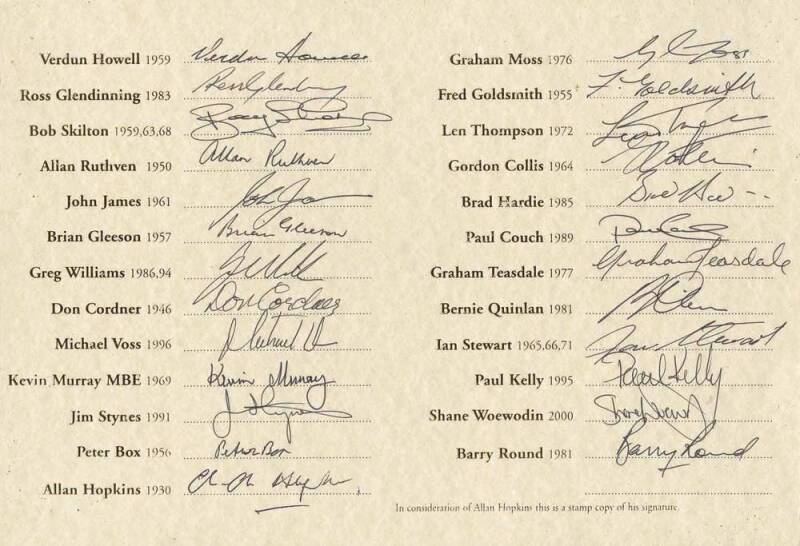 Verdun Howell 1959 Verdun Howell
Ross Glendinning 1983 Ross Glendinning
Bob Skilton 1959,63,68
Allan Ruthven 1950 Allan Ruthven
John James 1961
Brian Gleeson 1957 Brian Gleeson
Greg Williams 1986,94
Don Cordner 1946 Don Cordner
Michael Voss 1996
Kevin Murray MBE 1969 Kevin Murray
Jim Stynes 1991 J Stynes
Peter Box 1956 Peter Box
Allan Hopkins 1930
Graham Moss 1976
Fred Goldsmith 1955 F. Goldsmith
Len Thompson 1972
Gordon Collis 1964
Brad Hardie 1985
Paul Couch 1989
Graham Teasdale 1977 Graham Teasdale
Bernie Quinlan 1981
Ian Stewart 1965,66,71 Ian Stewart
Paul Kelly 1995 Paul Kelly
Shane Woewodin 2000
Barry Round 1981 Barry Round
In consideration of Allan Hopkins this is a stamp copy of his signature.